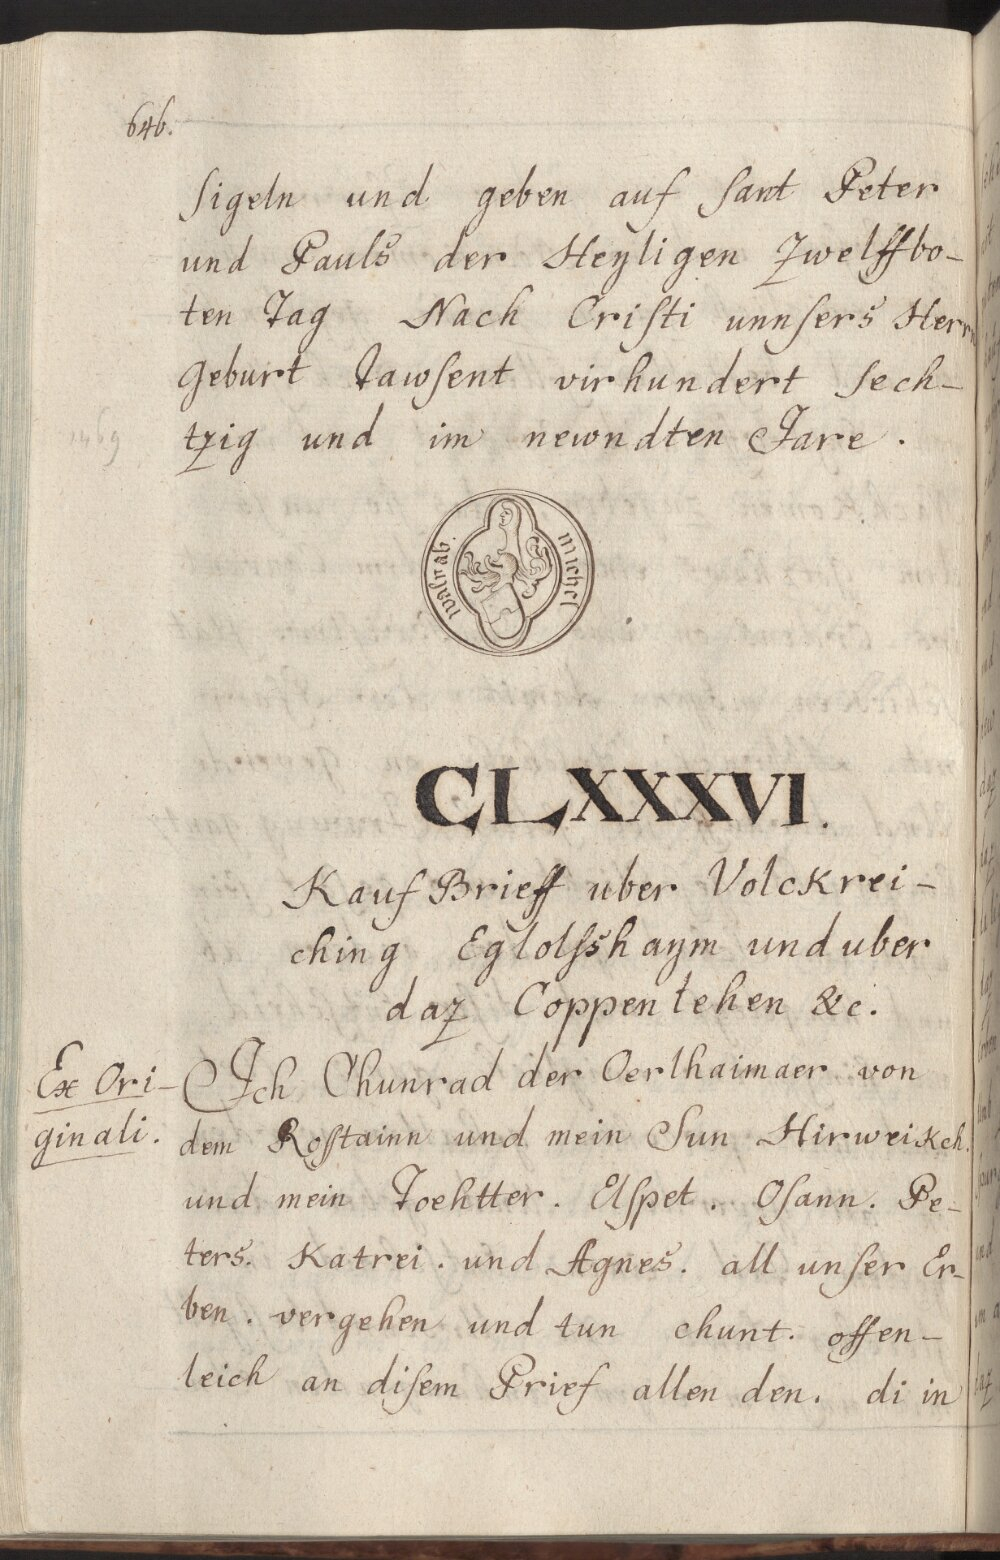 646.
ſigeln und geben auf ſant Peter
und Pauls der Heyligen Zwelffbo-
ten Tag Nach Criſti unnſers Herrn
Geburt Tawſent virhundert ſech-
tzig und im newndten Jare.
1469
michel
CLXXXVI.
Kauf Brieff uber Volckrei-
ching Eglolfshaym und uber
daz Coppenlehen &c.
Ex Ori-
ginali.
Jch Chunrad der Oerlhaimaer von
dem Roſtainn und mein Sun Hirweikch.
und mein Toehtter. Elſpet. Oſann. Pe-
ters. Katrei. und Agnes. all unſer Er-
ben. vergehen und tun chunt. offen-
leich an diſem Prief allen den. di in